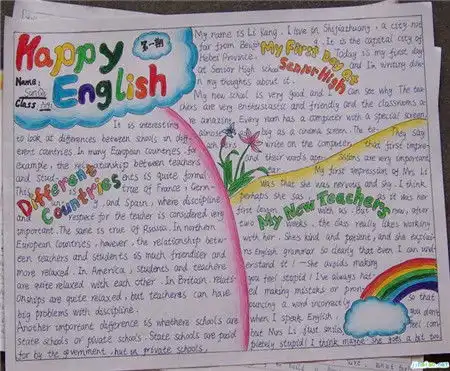 Happy
English
第一期
Name:
Class
My First Day at
Senior High
My name is Li Kang. I live in Shijiazhuang, a city not
far from Beijing. It is the capital city of
Hebei Province. Today is my first day
at Senior High school and I'm writing down
my thoughts about it.
My new school is very good and I can see why. The tea
chers are very enthusiastic and friendly and the classrooms a
re amazing. Every room has a computer with a special screen,
almost as big as a cinema screen. The te
write on the computer
They say
that first impre
and their words
ssions are very important
My first impression of Mrs Li
was that she was nervous and shy. I think
perhaps she was, as it was her
first lesson with us. But now, after
two weeks, the class really likes working
with her. She's kind and patient, and she explai
ns English grammar so clearly that even I can
understand it! — She avoids making
you feel stupid! I've always hat
ed making mistakes or pron
ouncing a word incorrectly
when I speak English,
but Mrs Li just smiles
so that
you don't
feel com
pletely stupid! I think maybe she
My New Teachers
Different
Countries
It is interesting
to look at differences between schools in diff
erent countries. In many European countries, for
example, the relationship between teachers
and stud
ents is quite formal.
This is
true of France, Germ
any, and Spain, where discipline
and respect for the teacher is considered very
important. The same is true of Russia. In northern
European countries, however, the relationship bet
ween teachers and students is much friendlier and
more relaxed. In America, students and teachers
are quite relaxed with each other. In Britain, relati
onships are quite relaxed, but teachers can have
big problems with discipline.
Another important difference is whethere schools are
state schools or private schools. State schools are paid
for by the government, but in private schools,